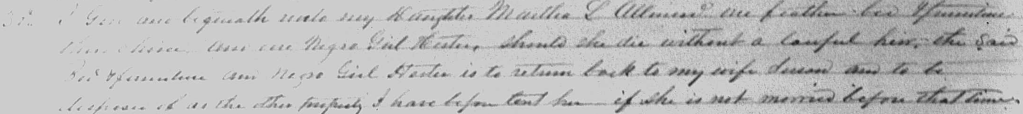 3rd I Give and bequeath unto my Daughter Martha L Allmond one feather bed & furniture
three chairs, and one Negro Girl Hester, should she die without a lawful heir, the said
Bed & furniture and Negro Girl Hester is to return back to my wife Susan and to be
disposed of as the other property I have before lent her if she is not married before that time.